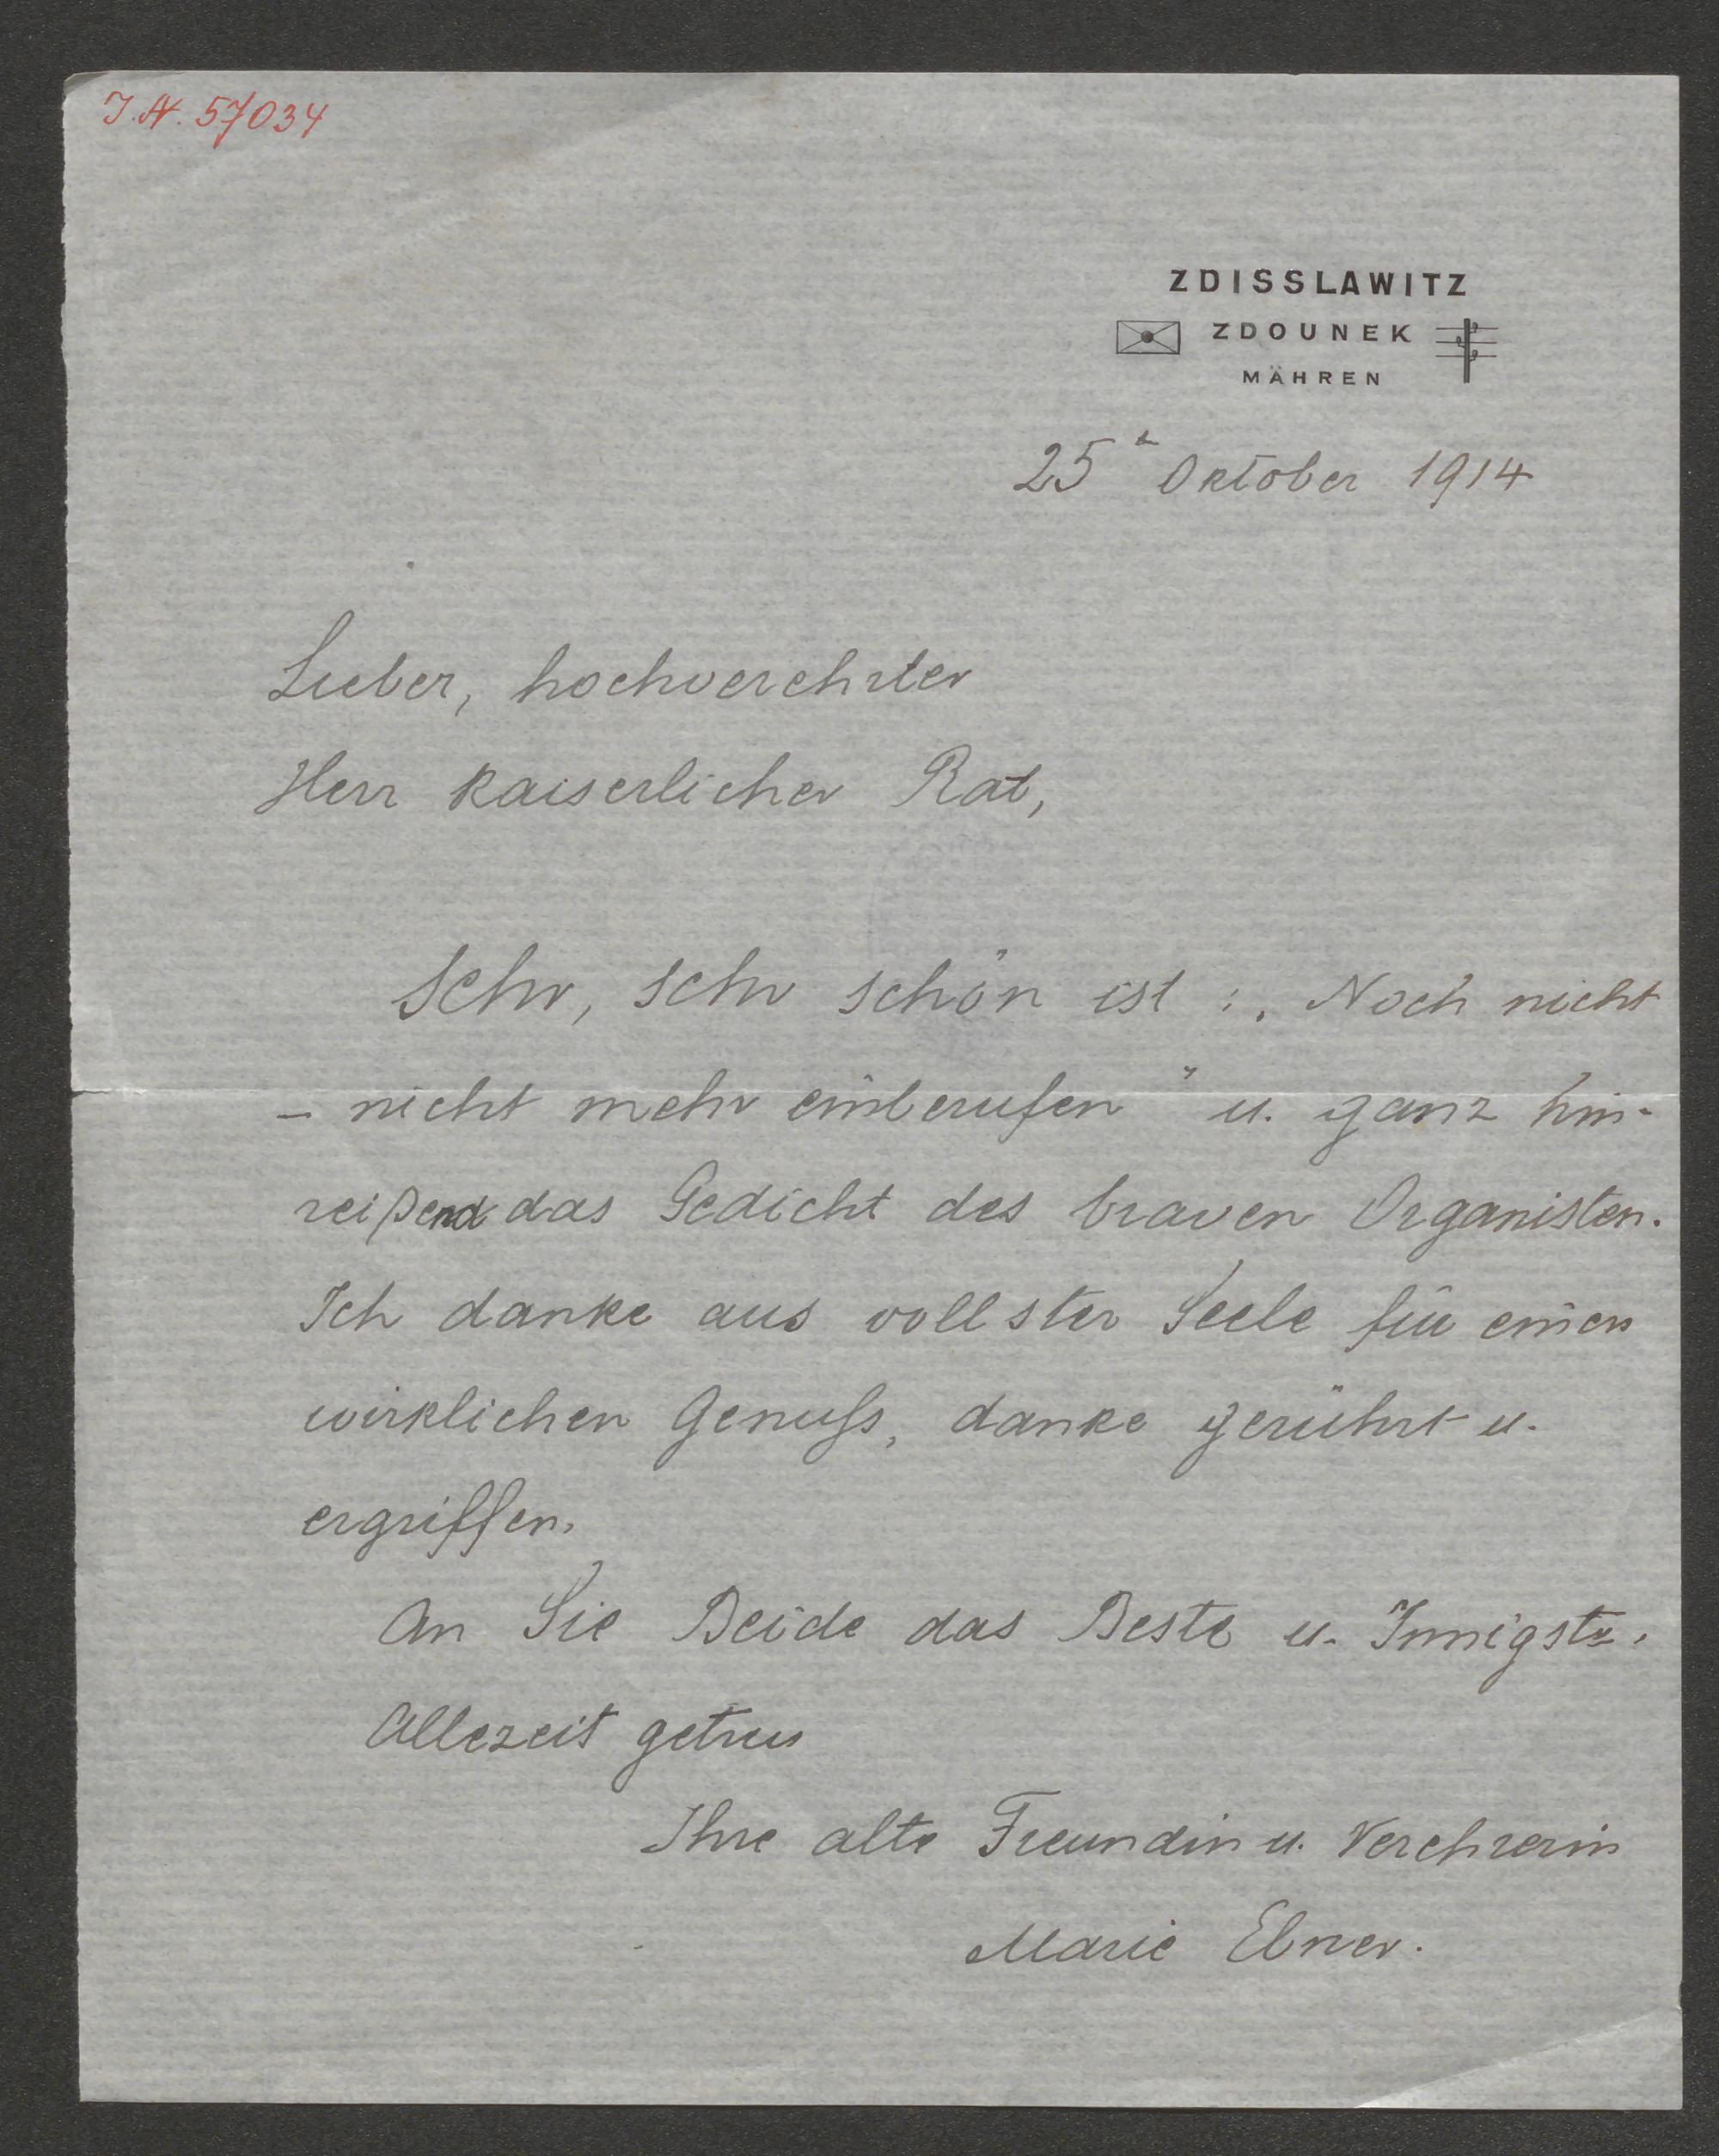 J.N. 57034
ZDISSLAWITZ
ZDOUNEK
MÄHREN
25t Oktober 1914
Lieber, hochverehrter
Herr kaiserlicher Rat,
Sehr, sehr schön ist : „Noch nicht
– nicht mehr einberufen" u. ganz hin-
reißend das Gedicht des braven Organisten.
Ich danke aus vollster Seele für einen
wirklichen Genuss, danke gerührt u.
ergriffen.
An Sie Beide das Beste u. Innigste.
Allezeit getreu
Ihre alte Freundin u. Verehrerin
Marie Ebner.